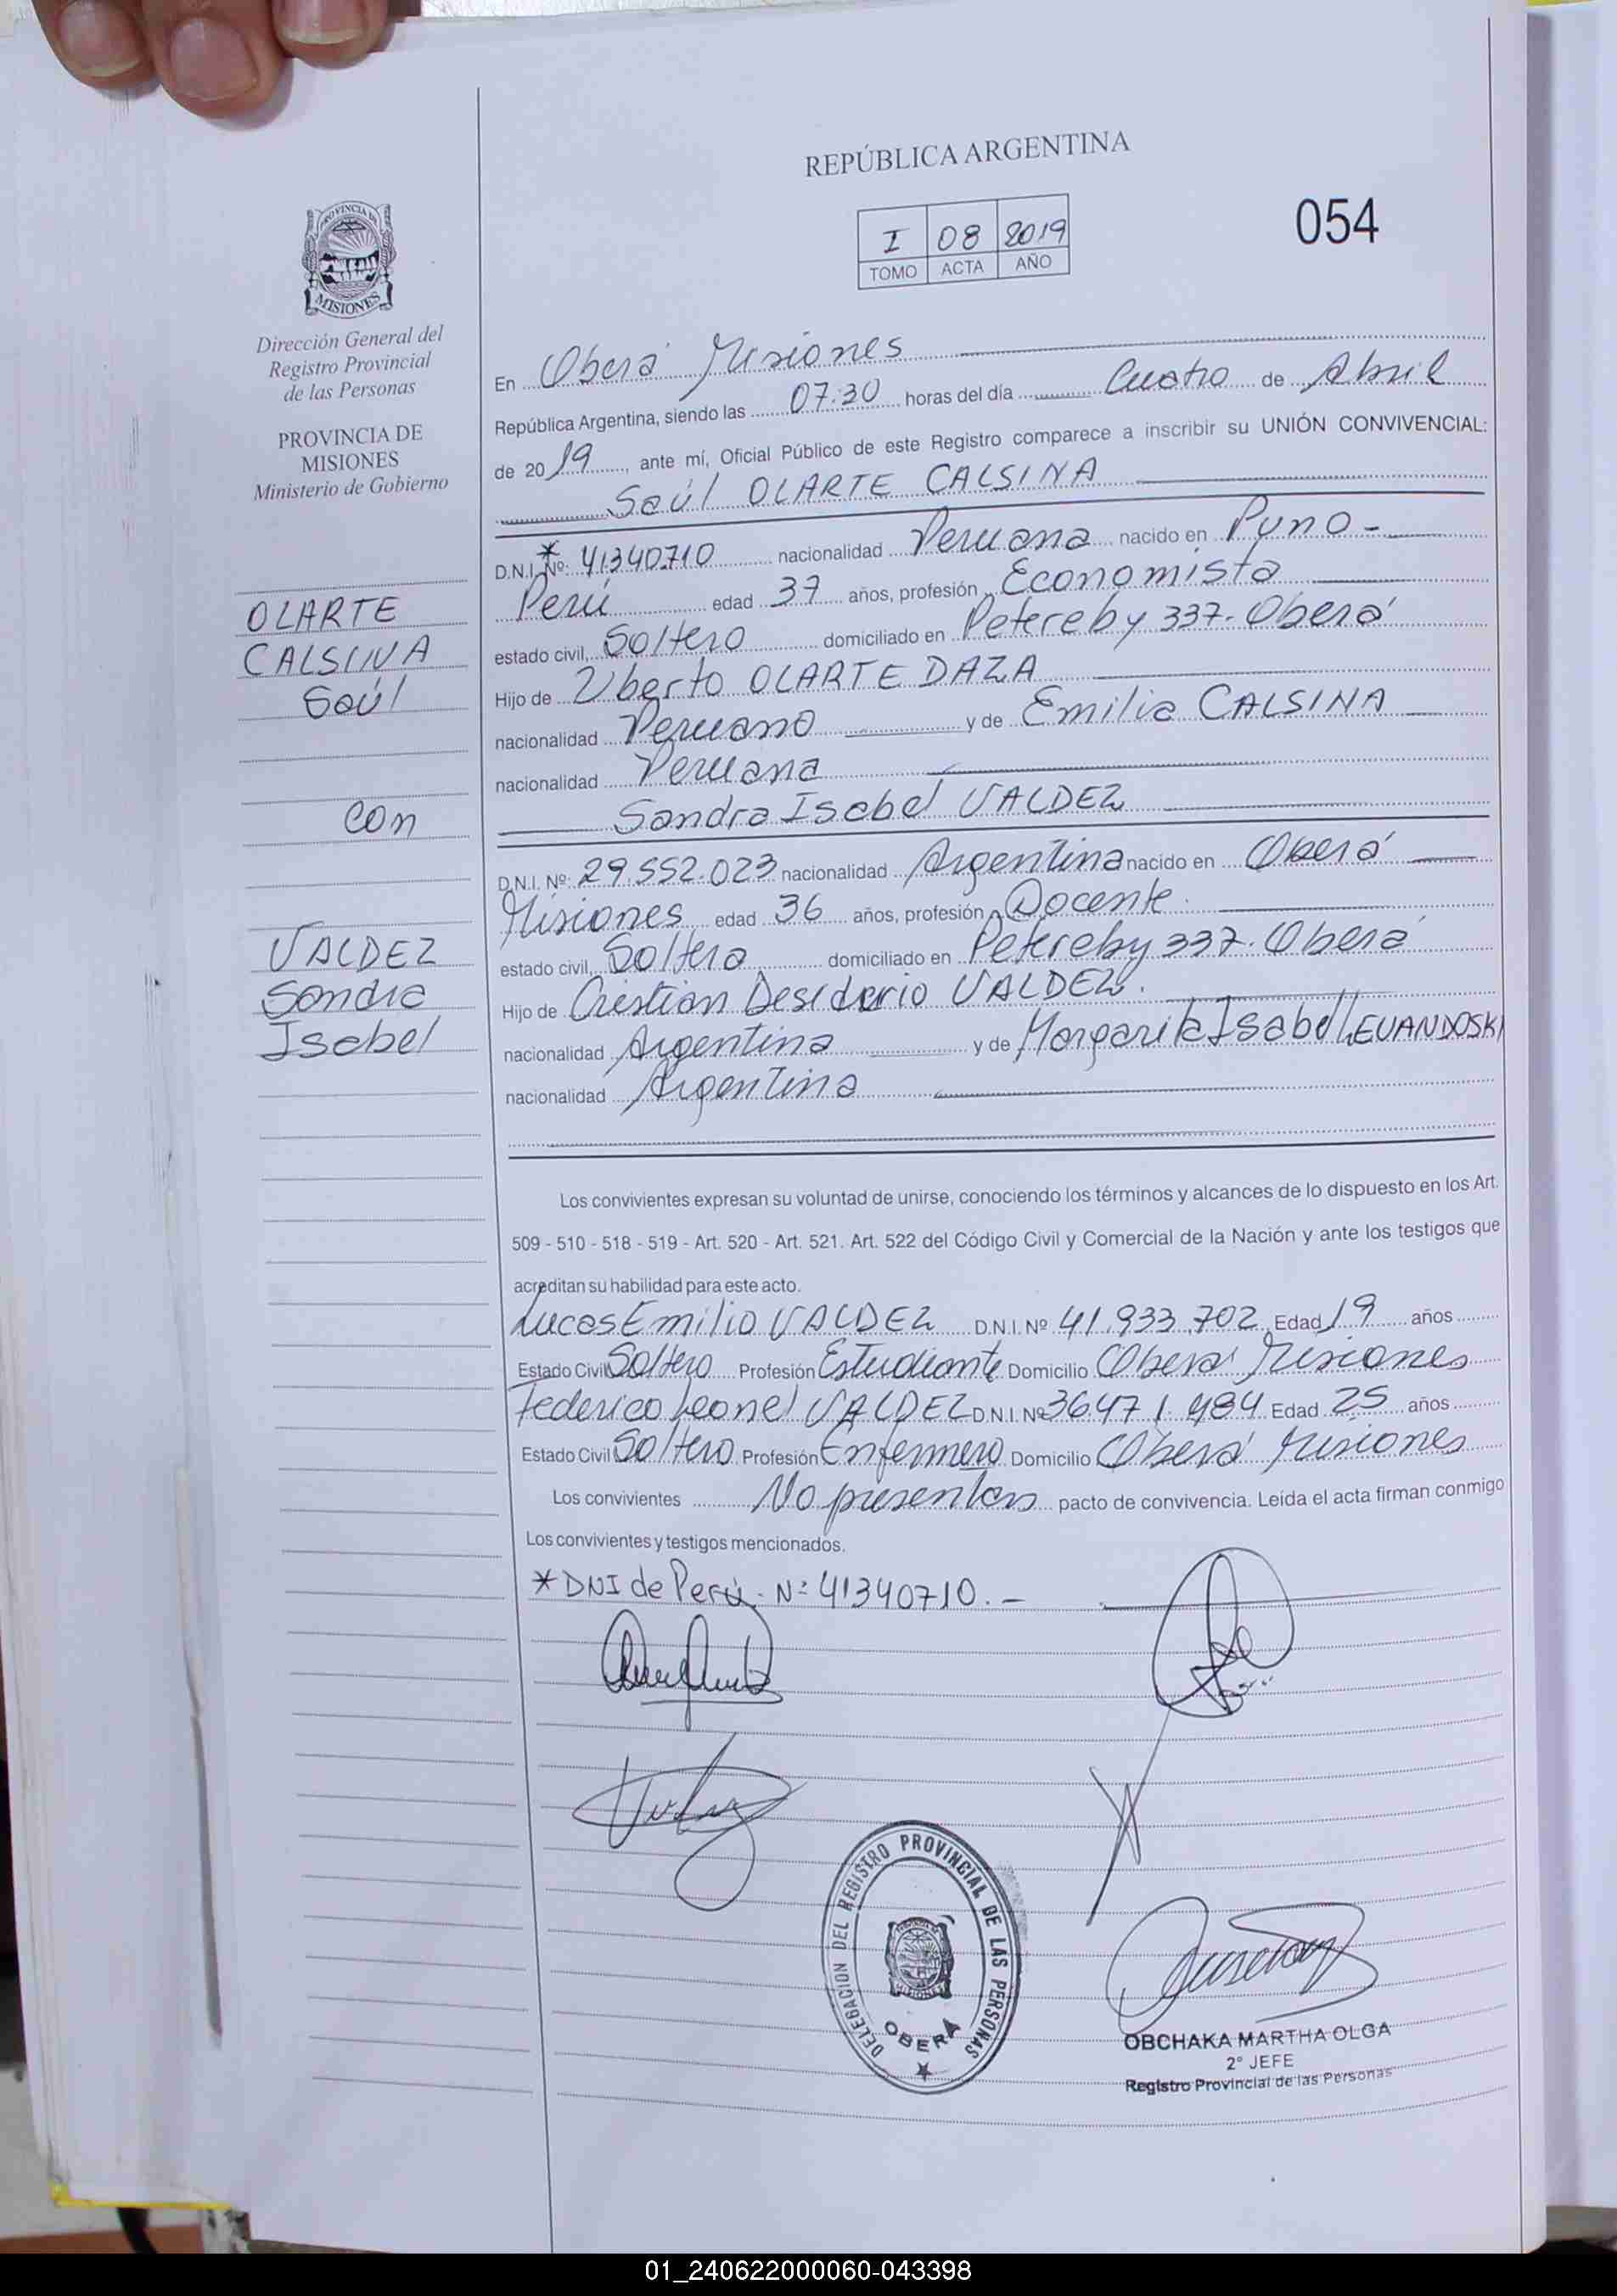 REPÚBLICA ARGENTINA
I 08 2019
TOMO ACTA AÑO
054
PROVINCIA DE
MISIONES
Dirección General del
Registro Provincial
de las Personas
PROVINCIA DE
MISIONES
Ministerio de Gobierno
OLARTE
CALSINA
Saúl
con
VALDEZ
Sandra
Isabel
En Oberá Misiones
República Argentina, siendo las 07:30 horas del día Cuatro de Abril
de 2019, ante mí, Oficial Público de este Registro comparece a inscribir su UNIÓN CONVIVENCIAL:
Saúl OLARTE CALSINA
D.N.I. Nº: * 41340710 nacionalidad Peruana nacido en Puno -
Perú edad 37 años, profesión Economista
estado civil, Soltero domiciliado en Petereby 337- Oberá
Hijo de Uberto OLARTE DAZA
nacionalidad Peruano y de Emilia CALSINA
nacionalidad Peruana
Sandra Isabel VALDEZ
D.N.I. Nº: 29.552.023 nacionalidad Argentina nacido en Oberá
Misiones edad 36 años, profesión Docente.
estado civil, Soltera domiciliado en Petereby 337. Oberá
Hijo de Cristian Desiderio VALDEZ.
nacionalidad Argentina y de Margarita Isabel LEVANDOSKI
nacionalidad Argentina
Los convivientes expresan su voluntad de unirse, conociendo los términos y alcances de lo dispuesto en los Art.
509 - 510 - 518 - 519 - Art. 520 - Art. 521. Art. 522 del Código Civil y Comercial de la Nación y ante los testigos que
acreditan su habilidad para este acto.
Lucas Emilio VALDEZ D.N.I. Nº 41.933.702 Edad 19 años
Estado Civil Soltero Profesión Estudiante Domicilio Oberá Misiones
Federico Leonel VALDEZ D.N.I. Nº 36.471.484 Edad 25 años
Estado Civil Soltero Profesión Enfermero Domicilio Oberá Misiones
Los convivientes No presentan pacto de convivencia. Leída el acta firman conmigo
Los convivientes y testigos mencionados.
* DNI de Perú - Nº 41340710. -
DELEGACION DEL REGISTRO PROVINCIAL DE LAS PERSONAS
OBERÁ
OBCHAKA MARTHA OLGA
2° JEFE
Registro Provincial de las Personas
01_240622000060-043398